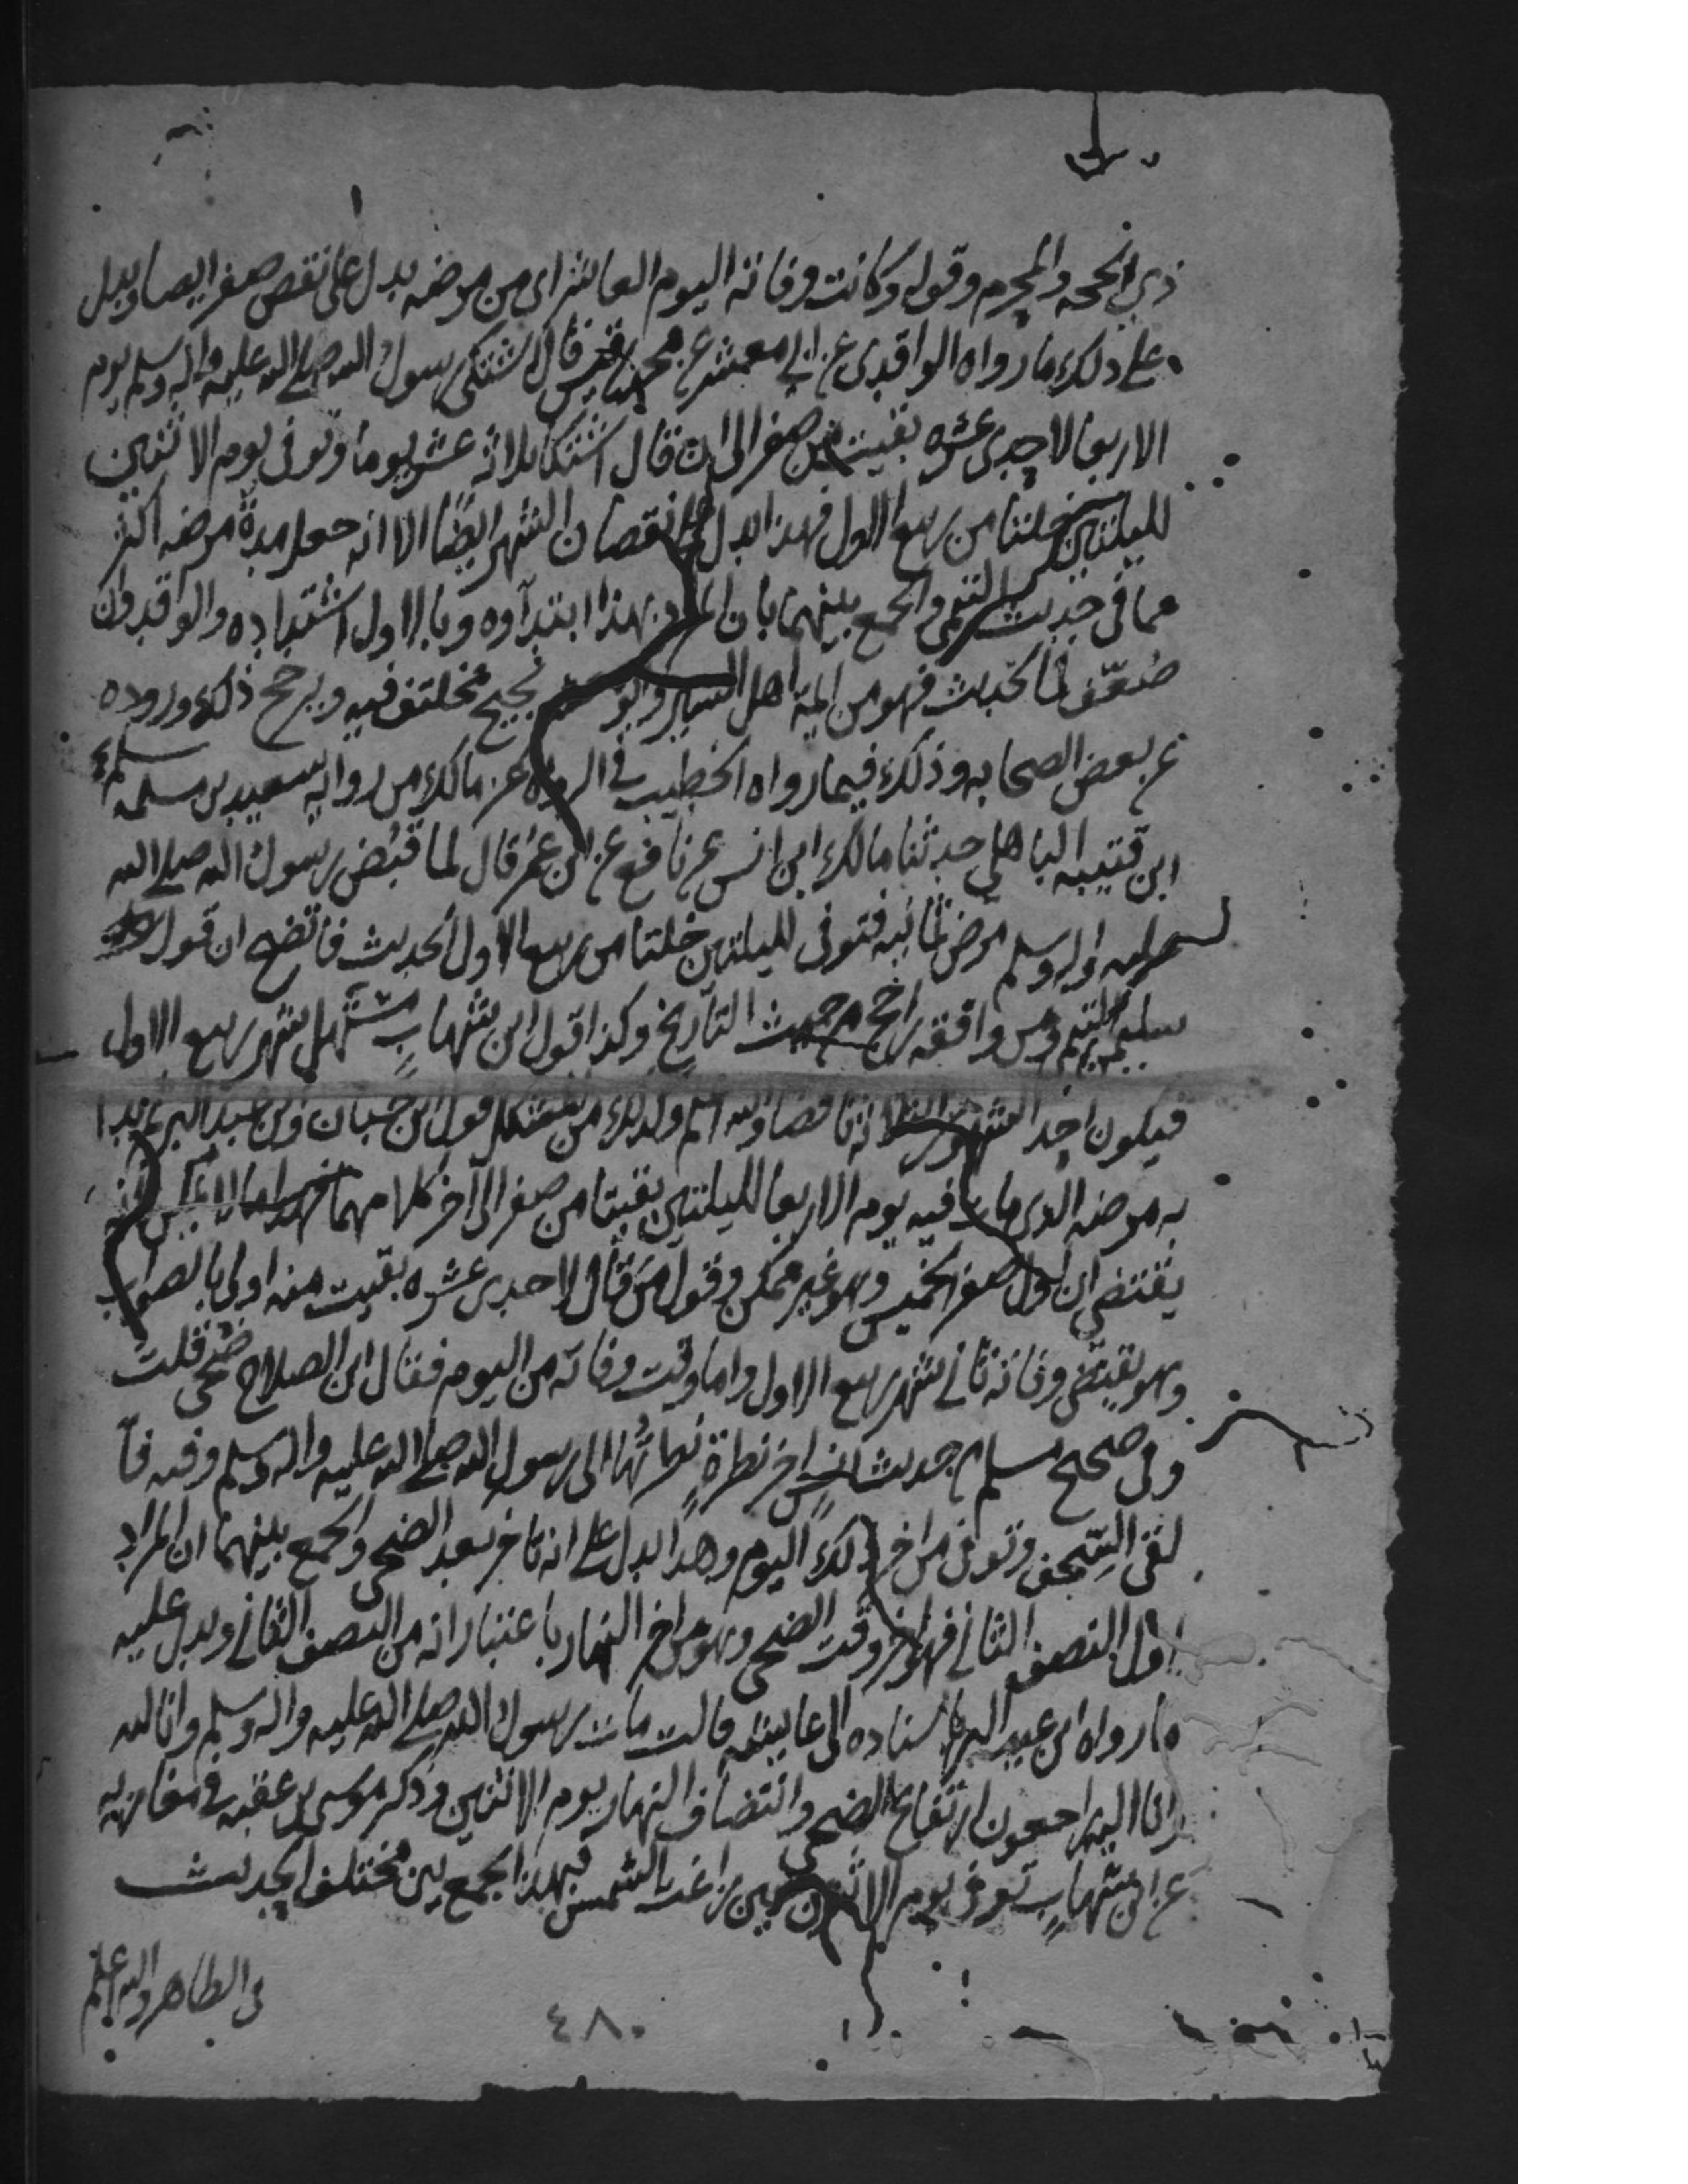 ذي الحجه والمحرم وقوله وكانت وفاته اليوم العاشر اي من مرضه يدل على نقص صفر ايضا ويدل
على ذلك ما رواه الواقدي عن ابي معشر عن محمد بن قيس قال اشتكى رسول الله صلى الله عليه واله وسلم يوم
الاربعا لاحدى عشره بقيت من صفر الى ان قال اشتكا ثلاثه عشر يوما وتوفى يوم الاثنين
لليلتين خلتا من ربيع الاول فهذا يدل على نقصان الشهر ايضا الا انه جعل مدة مرضه اكثر
مما في حديث التيمي والجمع بينهما بان المراد بهذا ابتدآوه وبالاول اشتداده والواقدي وان
ضعّف في الحديث فهو من ايمة اهل السير وابو معشر نجيح مختلف فيه ويرجح ذلك وروده
عن بعض الصحابه وذلك فيما رواه الخطيب في الرواه عن مالك من روايه سعيد بن مسلمه
ابن قتيبه الباهلي حدثنا مالك ابن انس عن نافع عن ابن عمر قال لما قبض رسول الله صلى الله
عليه واله وسلم مرض ثمانيه فتوفى لليلتين خلتا من ربيع الاول الحديث فاتضح ان قول
سليمن التيمي ومن وافقه راجح من حيث التاريخ وكذا قول ابن شهاب مستهل شهر ربيع الاول
فيكون احد الشهور الثلاثه ناقصا والله اعلم ولذلك من المشكل قول ابن حبان وابن عبد البر ثم بدا
به مرضه الذي مات فيه يوم الاربعا لليلتين بقيتا من صفر الى آخر كلامهما فهذا مما لا يمكن فانه
يقتضي ان اول صفر الخميس وهو غير ممكن وقول من قال لاحدى عشره بقيت منه اولى بالصواب
وهو يقتضي وفاته ثاني شهر ربيع الاول واما وقت وفاته من اليوم فقال ابن الصلاح ضحى قلت
وفي صحيح مسلم من حديث انس اخر نظرة نظرتها الى رسول الله صلى الله عليه واله وسلم وفيه فا
لقى السجف وتوفى من اخر ذلك اليوم وهذا يدل على انه تاخر بعد الضحى والجمع بينهما ان المراد
اول النصف الثاني فهو اخر وقت الضحى وهو من اخر النهار باعتبار انه من النصف الثاني ويدل عليه
ما رواه ابن عبد البر باسناده الى عايشه قالت مات رسول الله صلى الله عليه واله وسلم وانا لله
وانا اليه راجعون ارتفاع الضحى وانتصاف النهار يوم الاثنين وذكر موسى بن عقبه في مغازيه
عن ابن شهاب توفى يوم الاثنين حين زاغت الشمس فبهذا الجمع بين مختلف الحديث
في الظاهر والله اعلم
٤٨٠